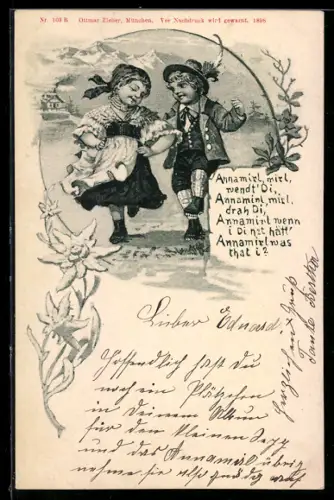 Nr. 103 b. Ottmar Zieher, München. Vor Nachdruck wird gewarnt. 1898
Annamirl, mirl,
wendt' Di,
Annamirl, mirl,
drah Di,
Annamirl wenn
i Di nət hätt'
Annamirl was
that i?
Lieber Eduard!
Hoffentlich hast Du
noch ein Plätzchen
in Deinem Album
für den kleinen Sepp
und das Annamirl übrig
nehme sie also gnädig auf
Herzlichen Gruß
Tante